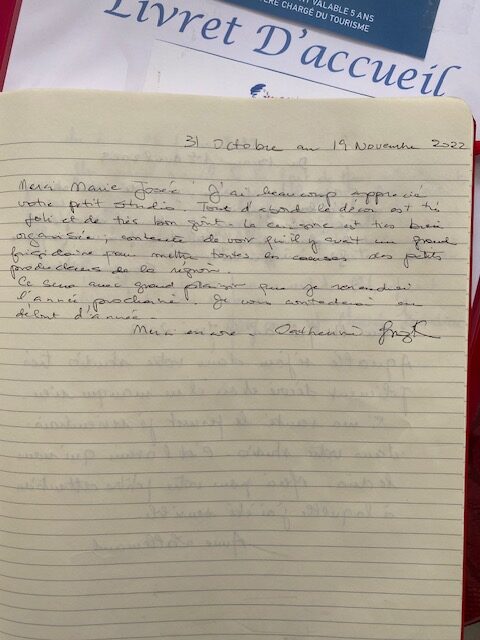 VALABLE 5 ANS
CHARGÉ DU TOURISME
Livret D'accueil
31 Octobre au 19 Novembre 2022
Merci Marie Josée ! J'ai beaucoup apprécié
votre petit studio. Tout d'abord le décor est très
joli et de très bon goût. La cuisine est très bien
organisée, contente de voir qu'il y avait un grand
frigidaire pour mettre toutes les courses des petits
producteurs de la région.
Ce sera avec grand plaisir que je reviendrai
l'année prochaine. Je vous contacterai en
début d'année.
Merci encore. Catherine